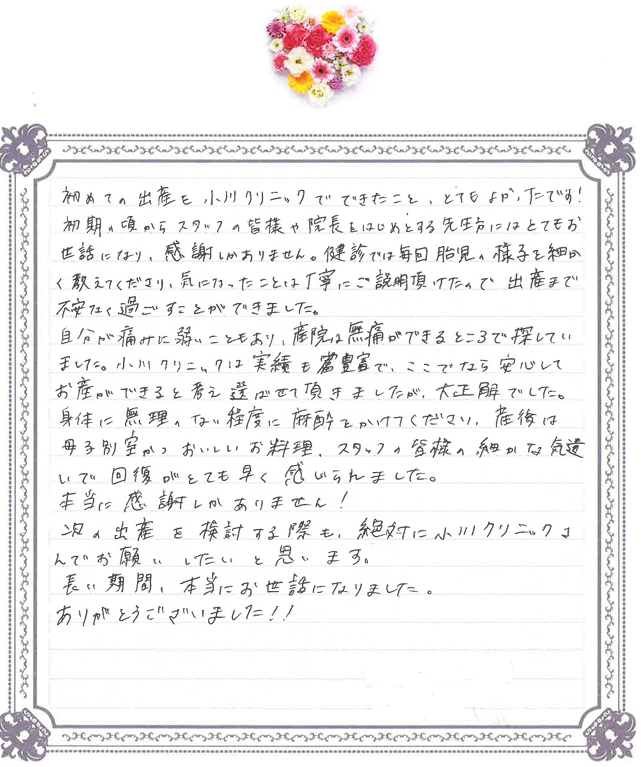 初めての出産を小川クリニックでできたこと、とてもよかったです!
初期の頃からスタッフの皆様や院長をはじめとする先生方にはとてもお
世話になり、感謝しかありません。健診では毎回胎児の様子を細か
く教えてくださり、気になったことは丁寧にご説明頂けたので出産まで
不安なく過ごすことができました。
自分が痛みに弱いこともあり、産院は無痛ができるところで探してい
ました。小川クリニックは実績も豊富で、ここでなら安心して
お産ができると考え選ばせて頂きましたが、大正解でした。
身体に無理のない程度に麻酔をかけてくださり、産後は
母子別室かつおいしいお料理、スタッフの皆様の細かな気遣
いで回復がとても早く感じられました。
本当に感謝しかありません!
次の出産を検討する際も、絶対に小川クリニックさ
んでお願いしたいと思います。
長い期間、本当にお世話になりました。
ありがとうございました!!